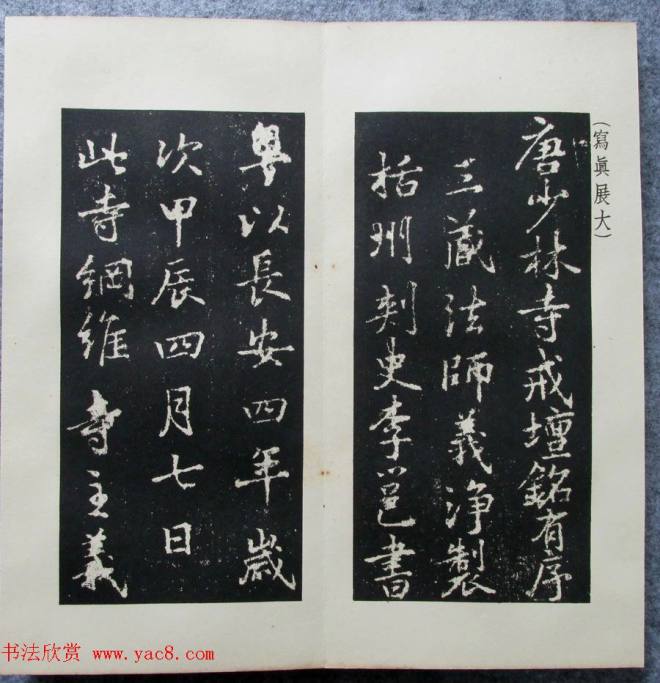 （寫眞展大）
唐少林寺戒壇銘有序
三藏法師義淨製
括州刺史李邕書
粤以長安四年歲
次甲辰四月七日
此寺綱維寺主義
书法欣赏 www.yac8.com